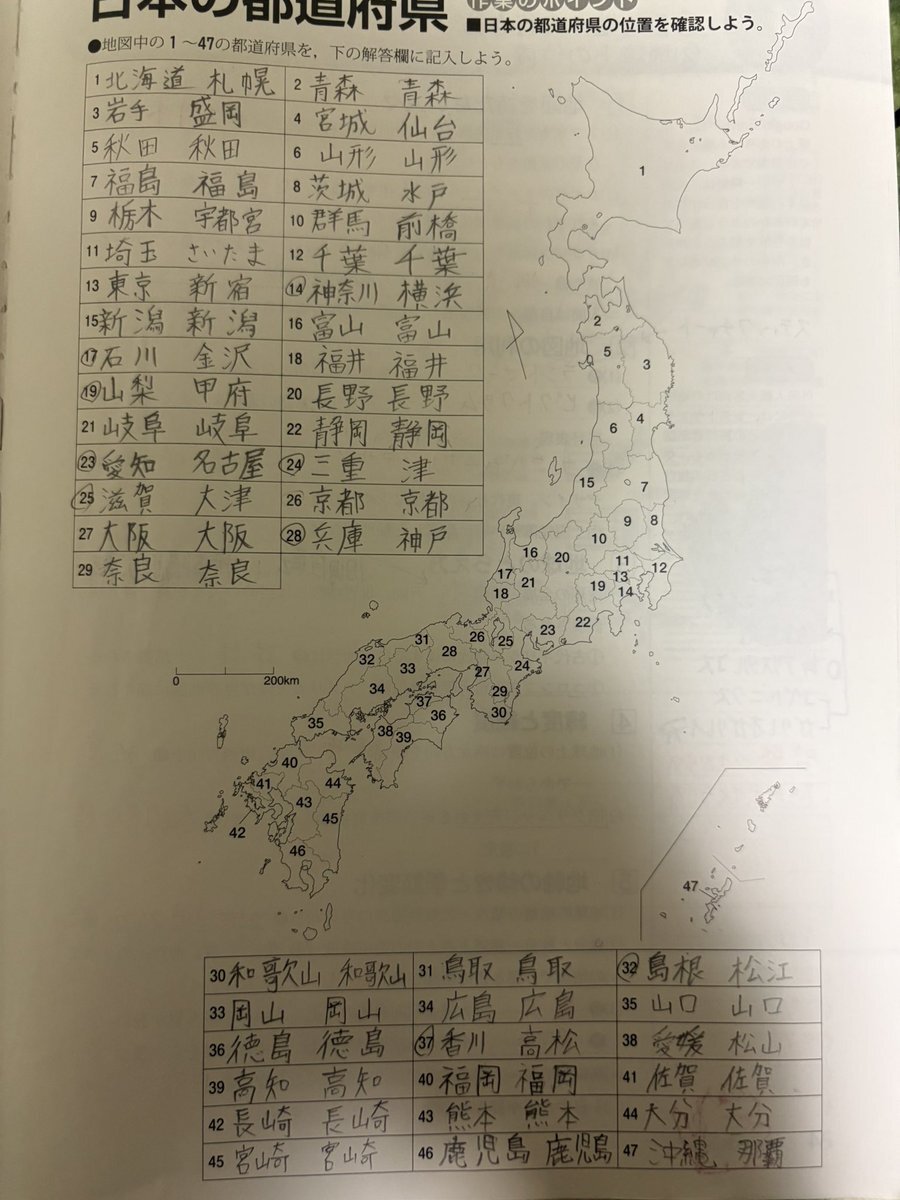 日本の都道府県
作業のポイント
■日本の都道府県の位置を確認しよう。
●地図中の1～47の都道府県を，下の解答欄に記入しよう。
1 北海道 札幌 2 青森 青森
3 岩手 盛岡 4 宮城 仙台
5 秋田 秋田 6 山形 山形
7 福島 福島 8 茨城 水戸
9 栃木 宇都宮 10 群馬 前橋
11 埼玉 さいたま 12 千葉 千葉
13 東京 新宿 14 神奈川 横浜
15 新潟 新潟 16 富山 富山
17 石川 金沢 18 福井 福井
19 山梨 甲府 20 長野 長野
21 岐阜 岐阜 22 静岡 静岡
23 愛知 名古屋 24 三重 津
25 滋賀 大津 26 京都 京都
27 大阪 大阪 28 兵庫 神戸
29 奈良 奈良
1
2
5 3
6 4
15 7
9 8
10
16 20 11 12
17 21 13
18 19 14
23 22
31 26 25
32 28
33 27 24
34 29
37 30
35 38 36
39
40
41 44
43
42 45
46
47
0 200km
30 和歌山 和歌山 31 鳥取 鳥取 32 島根 松江
33 岡山 岡山 34 広島 広島 35 山口 山口
36 徳島 徳島 37 香川 高松 38 愛媛 松山
39 高知 高知 40 福岡 福岡 41 佐賀 佐賀
42 長崎 長崎 43 熊本 熊本 44 大分 大分
45 宮崎 宮崎 46 鹿児島 鹿児島 47 沖縄 那覇